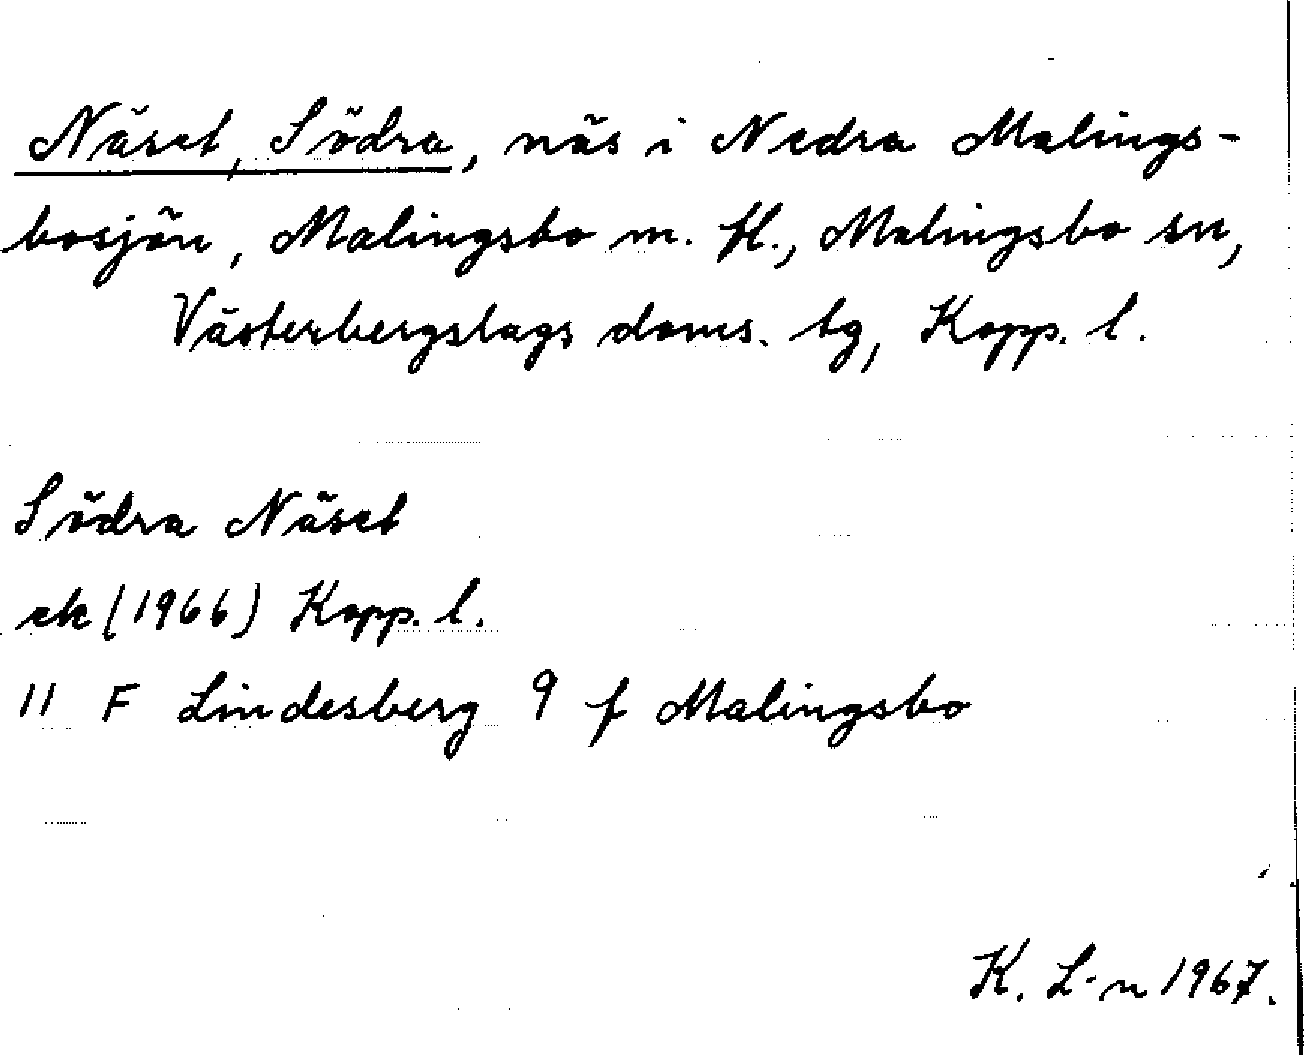 Näset, Södra, näs i Nedra Malings-
bosjön, Malingsbo m. fl., Malingsbo sn,
Västerbergslags doms. tg, Kopp. l.
Södra Näset
ek (1966) Kopp. l.
11 F Lindesberg 9 f Malingsbo
K. L-n 1967.